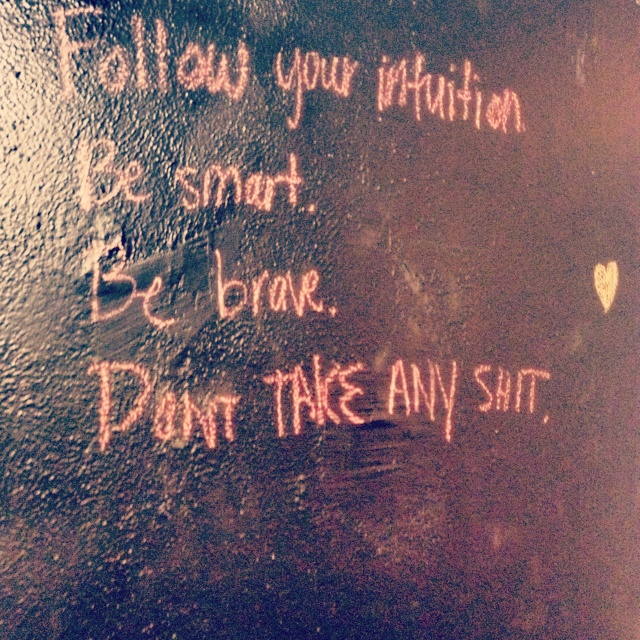 Follow your intuition
Be smart.
Be brave.
DONT TAKE ANY SHIT.